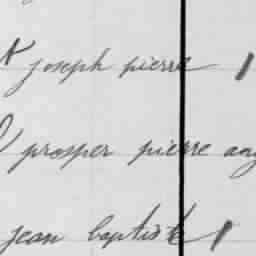 joseph pierre
prosper pierre
jean baptiste